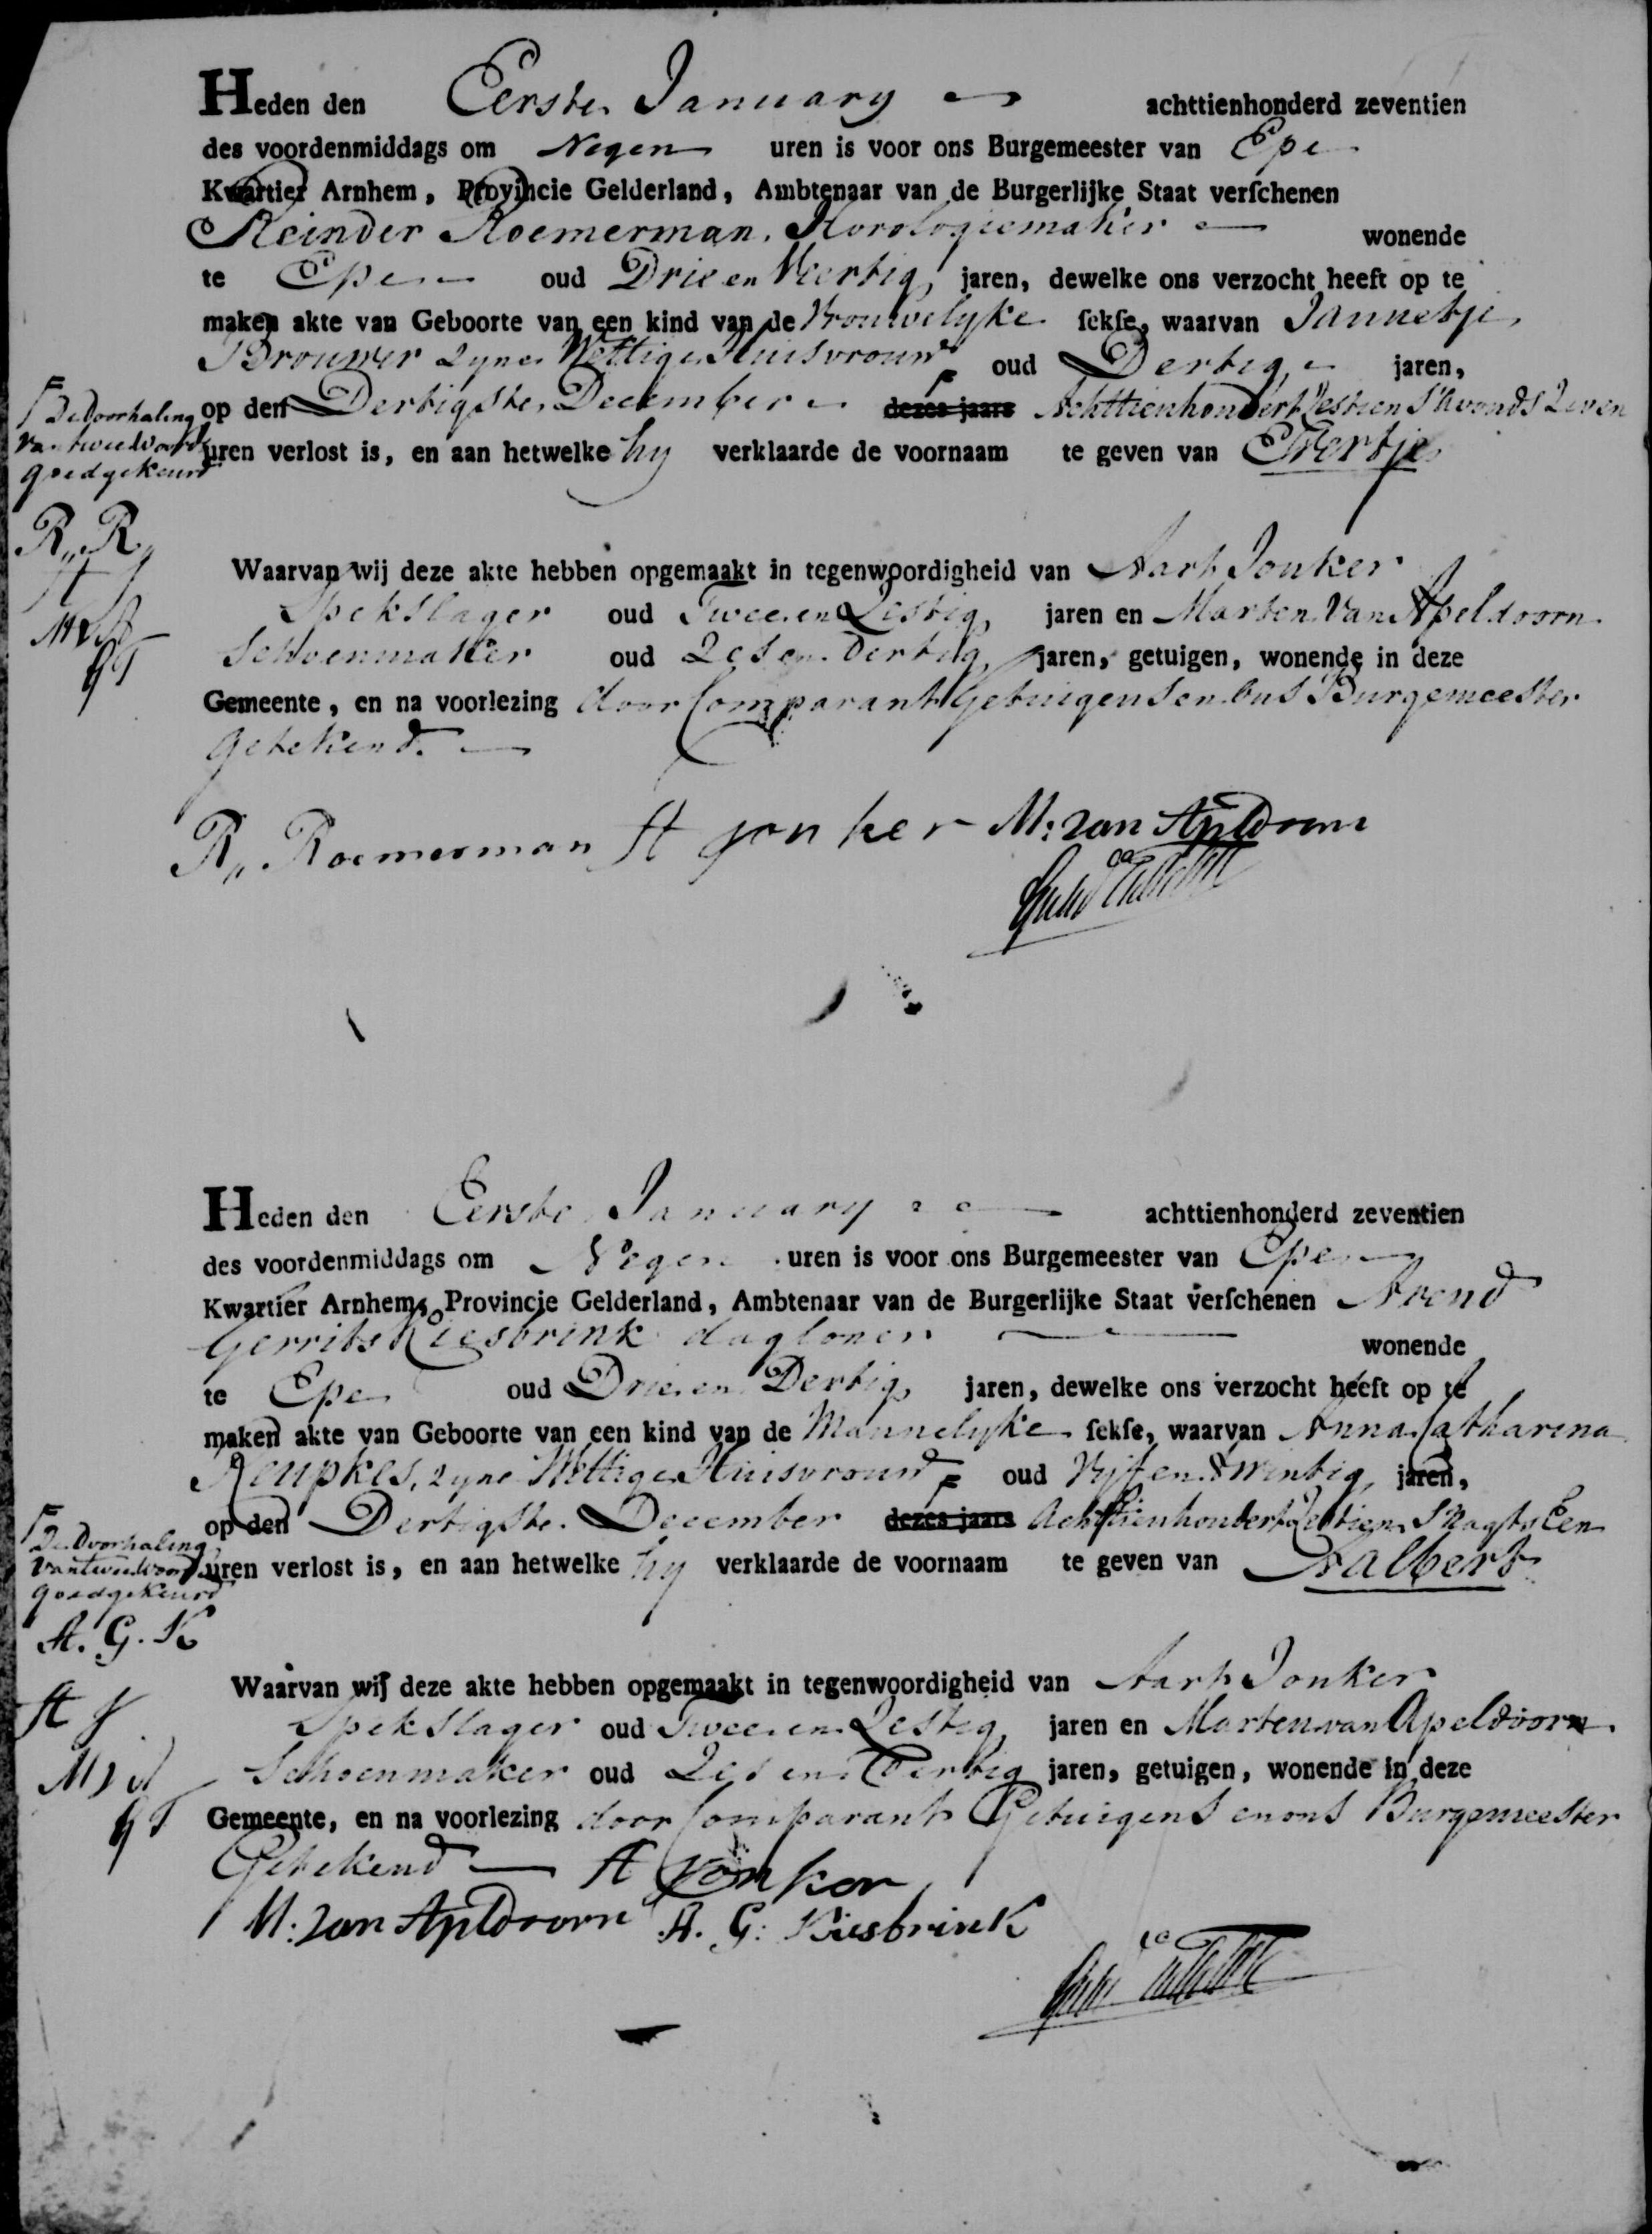 Heden den Eerste January achttienhonderd zeventien
des voordenmiddags om Negen uren is voor ons Burgemeester van Epe
Kwartier Arnhem, Provincie Gelderland, Ambtenaar van de Burgerlijke Staat verſchenen
Reinder Roemerman, Horologiemaker wonende
te Epe oud Drie en Veertig jaren, dewelke ons verzocht heeft op te
maken akte van Geboorte van een kind van de Vrouwelyke ſekſe, waarvan Jannetje
Brouwer Zyne Wettige Huisvrouw oud Dertig jaren,
op den Dertigste December dezes jaars Achttienhondert Zestien S'Avonds Zeven
uren verlost is, en aan hetwelke hy verklaarde de voornaam te geven van Evertje
De doorhaling
van twee woorden
goedgekeurd
R,, R,,
A J
MVA
Waarvan wij deze akte hebben opgemaakt in tegenwoordigheid van Aart Jonker
Spekslager oud Twee en Zestig jaren en Marten Van Apeldoorn
Schoenmaker oud Zes en Dertig jaren, getuigen, wonende in deze
Gemeente, en na voorlezing door Comparant Getuigens en Ons Burgemeester
Getekend.
R,, Roemerman A Jonker M: van Apldoorn
Heden den Eerste January achttienhonderd zeventien
des voordenmiddags om Negen uren is voor ons Burgemeester van Epe
Kwartier Arnhem, Provincie Gelderland, Ambtenaar van de Burgerlijke Staat verſchenen Arend
Gerrits Kiesbrink dagloner wonende
te Epe oud Drie en Dertig jaren, dewelke ons verzocht heeft op te
maken akte van Geboorte van een kind van de Mannelyke ſekſe, waarvan Anna Catharina
Keupkes, zyne Wettige Huisvrouw oud Vyf en Twintig jaren,
op den Dertigste December dezes jaars Achttienhondert Zestien S'Nagts Een
uren verlost is, en aan hetwelke hy verklaarde de voornaam te geven van Aalbert
De Doorhaling
van twee woorden
goedgekeurd
A. G. K
A J
MVA
Waarvan wij deze akte hebben opgemaakt in tegenwoordigheid van Aart Jonker
Spekslager oud Twee en Zestig jaren en Marten van Apeldoorn
Schoenmaker oud Zes en Dertig jaren, getuigen, wonende in deze
Gemeente, en na voorlezing door Comparant Getuigens en ons Burgemeester
Getekend A Jonker
M: van Apldoorn A. G: Kiesbrink